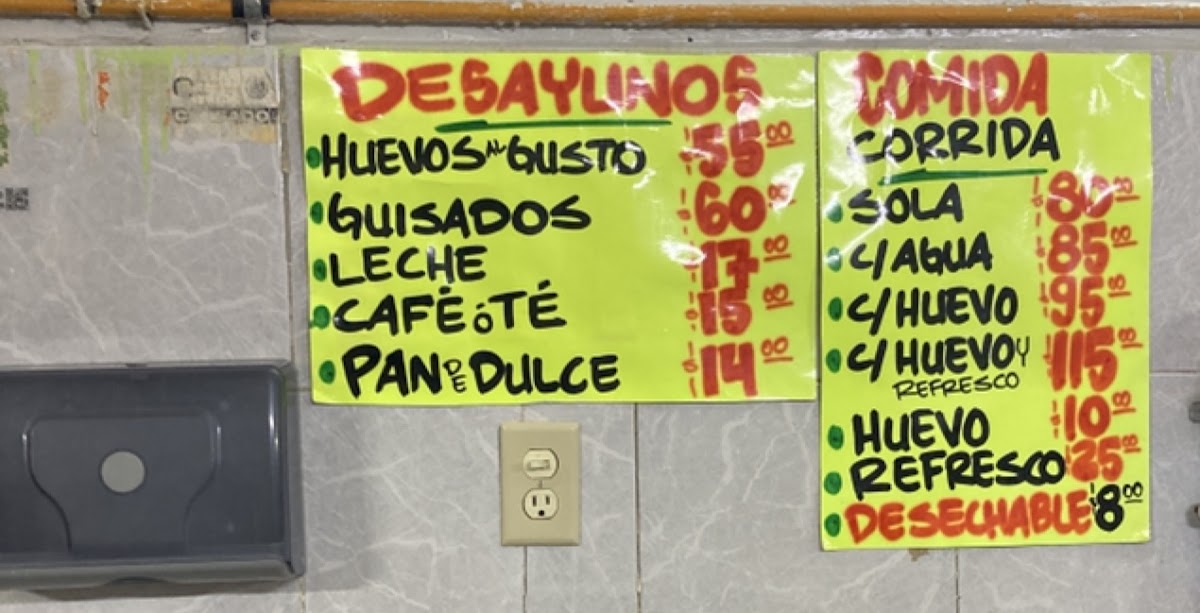 DESAYUNOS
HUEVOS AL GUSTO $55.00
GUISADOS $60.00
LECHE $17.00
CAFÉ ó TÉ $15.00
PAN DE DULCE $14.00
COMIDA
CORRIDA
SOLA $80.00
C/AGUA $85.00
C/HUEVO $95.00
C/HUEVO Y $115.00
REFRESCO
HUEVO $10.00
REFRESCO $25.00
DESECHABLE $8.00